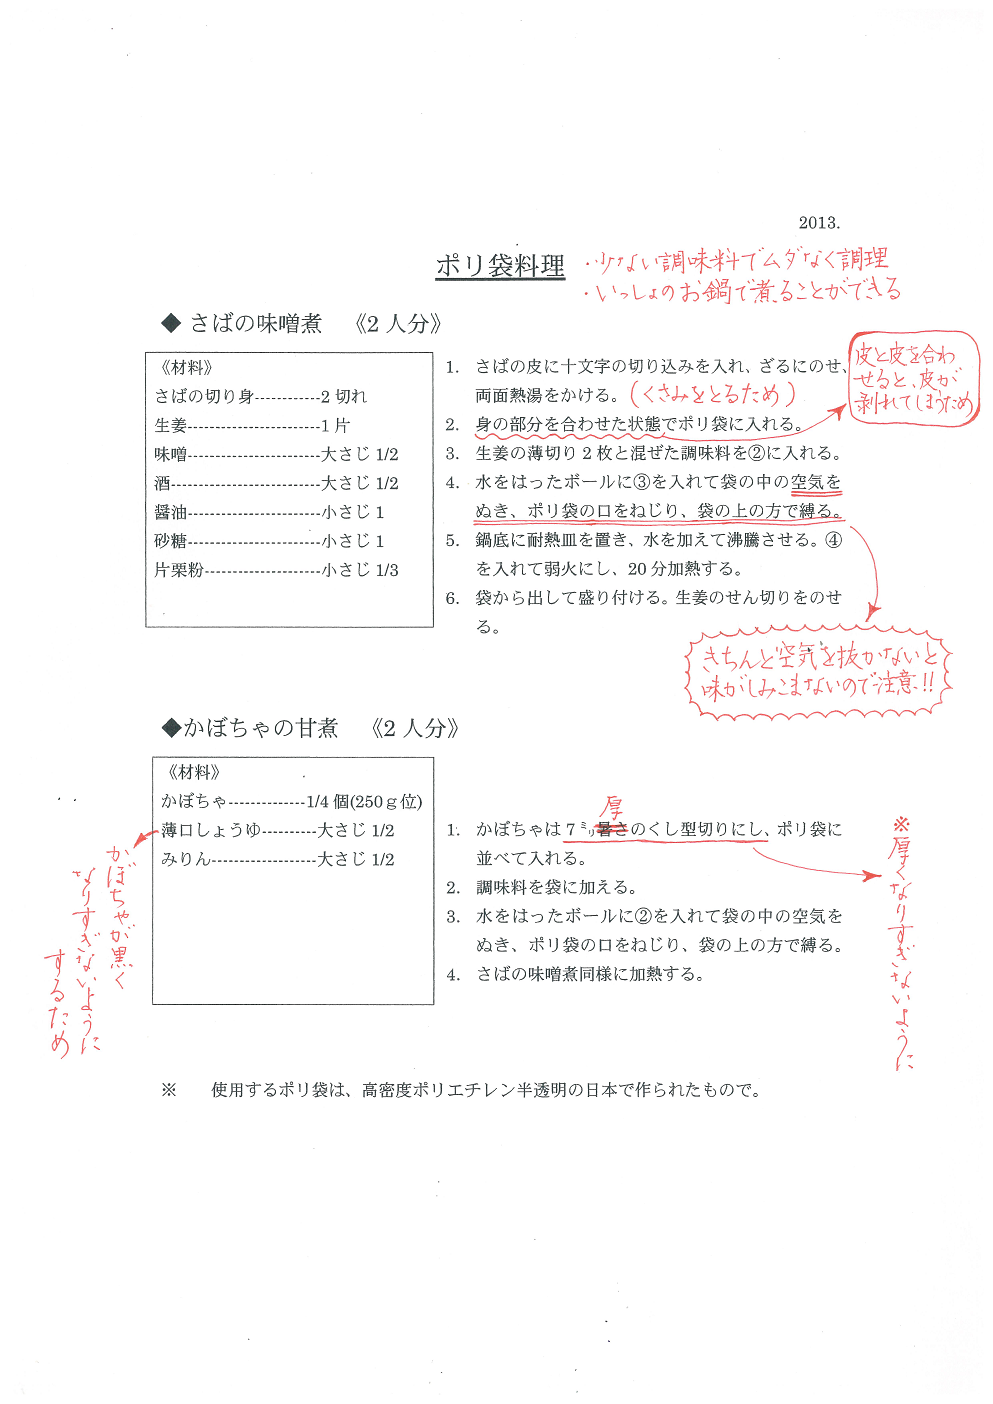 2013.
ポリ袋料理
・少ない調味料でムダなく調理
・いっしょのお鍋で煮ることができる
◆ さばの味噌煮　《2 人分》
《材料》
さばの切り身------------2 切れ
生姜------------------------1 片
味噌------------------------大さじ 1/2
酒---------------------------大さじ 1/2
醤油------------------------小さじ 1
砂糖------------------------小さじ 1
片栗粉---------------------小さじ 1/3
1. さばの皮に十文字の切り込みを入れ、ざるにのせ、
両面熱湯をかける。(くさみをとるため)
2. 身の部分を合わせた状態でポリ袋に入れる。
皮と皮を合わ
せると、皮が
剥れてしまうため
3. 生姜の薄切り 2 枚と混ぜた調味料を②に入れる。
4. 水をはったボールに③を入れて袋の中の空気を
ぬき、ポリ袋の口をねじり、袋の上の方で縛る。
5. 鍋底に耐熱皿を置き、水を加えて沸騰させる。④
を入れて弱火にし、20 分加熱する。
6. 袋から出して盛り付ける。生姜のせん切りをのせ
る。
きちんと空気を抜かないと
味がしみこまないので注意!!
◆かぼちゃの甘煮　《2 人分》
《材料》
かぼちゃ--------------1/4 個(250ｇ位)
薄口しょうゆ----------大さじ 1/2
みりん-------------------大さじ 1/2
かぼちゃが黒く
なりすぎないように
するため
厚
1. かぼちゃは 7 ㍉暑さのくし型切りにし、ポリ袋に
並べて入れる。
※厚くなりすぎないように
2. 調味料を袋に加える。
3. 水をはったボールに②を入れて袋の中の空気を
ぬき、ポリ袋の口をねじり、袋の上の方で縛る。
4. さばの味噌煮同様に加熱する。
※　使用するポリ袋は、高密度ポリエチレン半透明の日本で作られたもので。